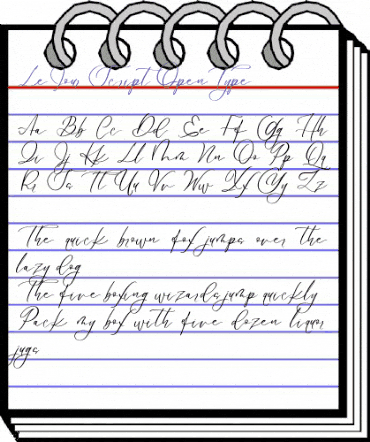 Le Jour Script Open Type
Aa Bb Cc Dd Ee Ff Gg Hh
Ii Jj Kk Ll Mm Nn Oo Pp Qq
Rr Ss Tt Uu Vv Ww Xx Yy Zz
The quick brown fox jumps over the
lazy dog
The five boxing wizards jump quickly
Pack my box with five dozen liquor
jugs